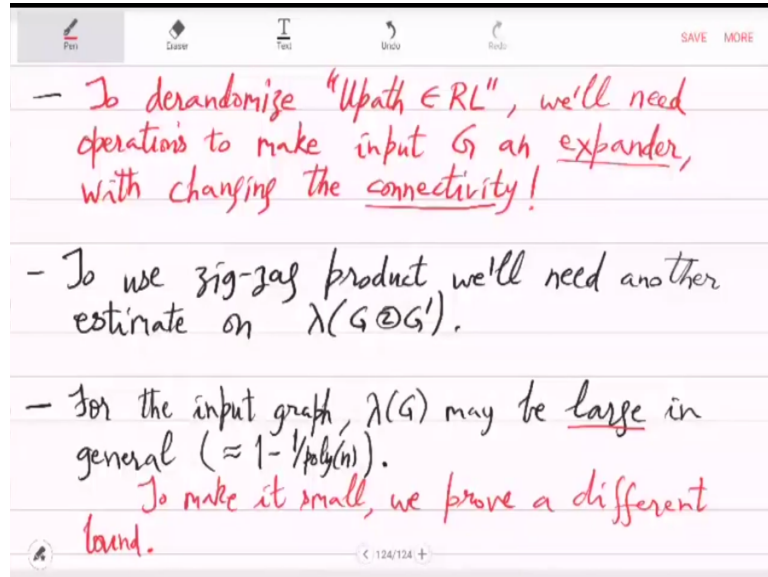 Pen Eraser Text Undo Redo SAVE MORE
- To derandomize "Upath ∈ RL", we'll need
operations to make input G an expander,
with changing the connectivity!
- To use zig-zag product, we'll need another
estimate on λ(G ⓩ G').
- For the input graph, λ(G) may be large in
general (≈ 1 - 1/poly(n)).
To make it small, we prove a different
bound.
< 124/124 +